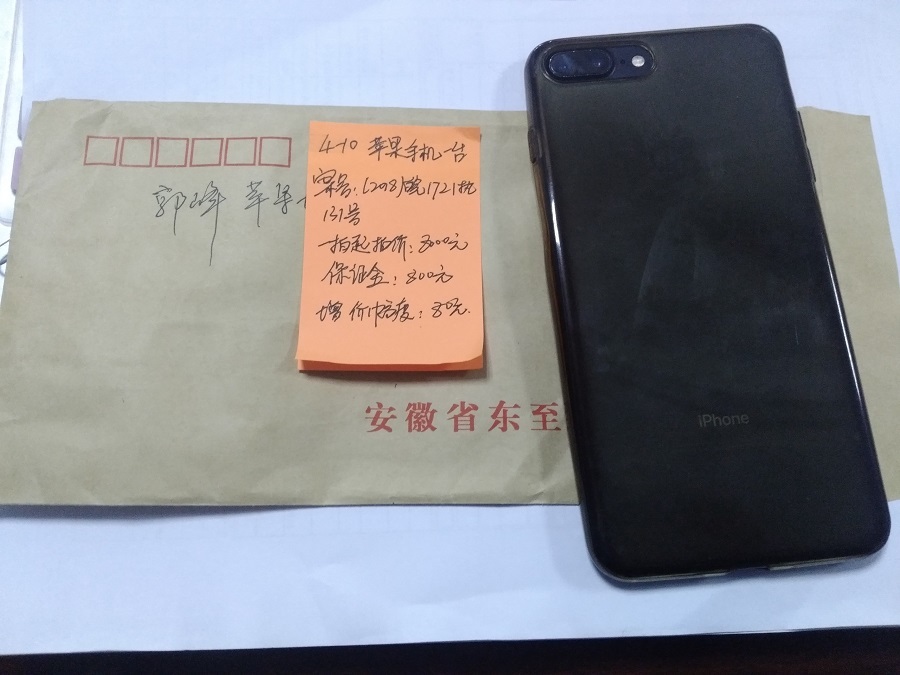 郭峰 苹果
4-10 苹果手机一台
案号：(2018)皖1721执
131号
一拍起拍价：3000元
保证金：300元
增价幅度：30元.
安徽省东至
iPhone